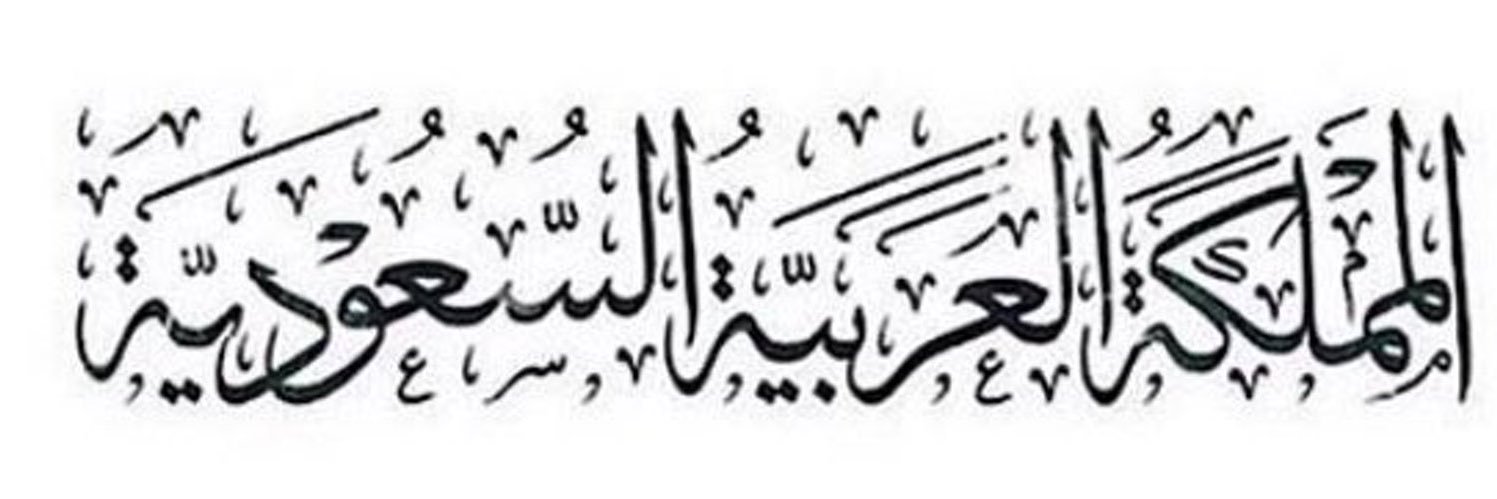 المملكة العربيّة السّعوديّة